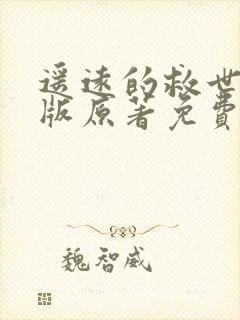 遥远的救世
版原著免费
魏智威